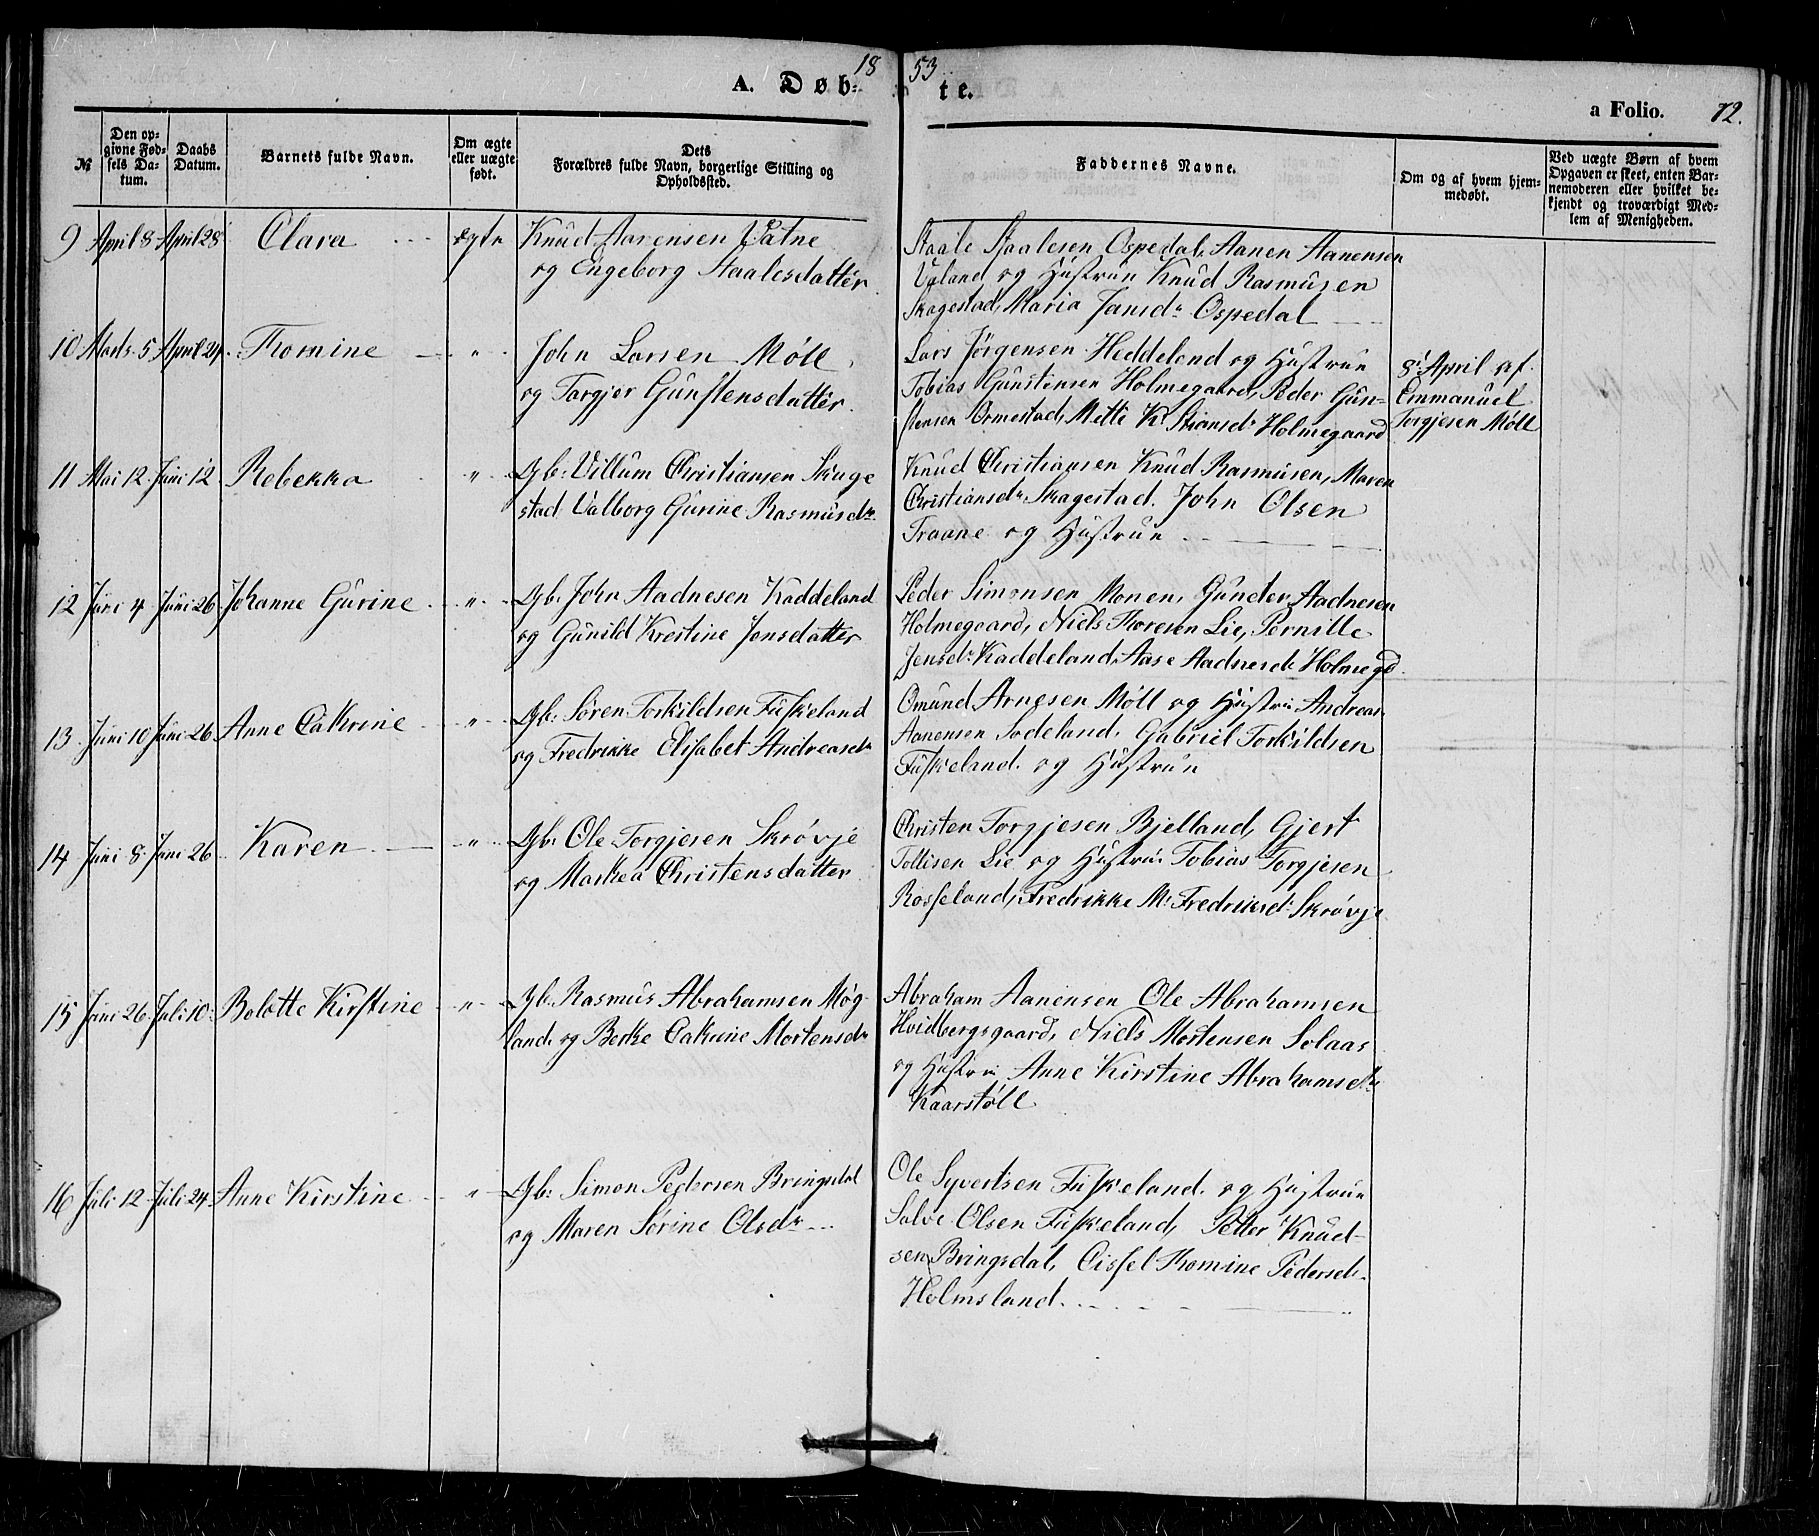 1853
A. Døb- te.
a Folio. 72.
№ | Den opgivne Fødsels Datum. | Daabs Datum. | Barnets fulde Navn. | Om ægte eller uægte født. | Dets Forældres fulde Navn, borgerlige Stilling og Opholdssted. | Faddernes Navne. | Om og af hvem hjemmedøbt. | Ved uægte Børn af hvem Opgaven er skeet, enten Barnemoderen eller hvilket bekjendt og troværdigt Medlem af Menigheden.
9 April 8 April 28 Clara ægte Knud Aarensen Vatne
og Engeborg Staalesdatter
Staale Staalesen Ospedal, Aanen Aanensen
Upland og Hustrun Knud Rasmusen
Skagestad, Maria Jansdr Ospedal
10 Marts 5 April 24 Tromine " John Larsen Møll
og Torgjer Gunstensdatter
Lars Jørgensen Heddeland og Hustrun
Tobias Gunstensen Holmegaard, Peder Gun-
stensen Ormestad, Mette K. Stiansdr Holmegaard
8 April af
Emmanuel
Torgjesen Møll
11 Mai 12 Juni 12 Rebekka " Gb: Villum Christiansen Skage
stad Valborg Gurine Rasmusdr
Knud Christiansen Knud Rasmusen, Maren
Christiansdr Skagestad. John Olsen
Traane og Hustrun
12 Juni 4 Juni 26 Johanne Gurine " Gb. John Aadnesen Kaddeland
og Gunild Krestine Jensdatter
Peder Simonsen Monen, Gunder Aadnesen
Holmegaard, Niels Thoresen Lie, Pernille
Jensdr Kaddeland, Aase Aadnesdr Holmegd
13 Juni 10 Juni 26 Anne Catrine " Gb: Søren Torkildsen Fuskeland
og Fredrikke Elisabet Andreasdr
Omund Arnesen Møll og Hustru Andreas
Aanensen Sodeland, Gabriel Torkildsen
Fuskeland. og Hustrun
14 Juni 8 Juni 26 Karen " Gb: Ole Torgjesen Skrøvje
og Markea Christensdatter
Christen Torgjesen Bjelland, Gjert
Tollisen Lie og Hustru Tobias Torgjesen
Rosseland, Fredrikke M. Fredriksdr Skrøvje
15 Juni 26 Juli 10 Bolette Kirstine " Gb. Rasmus Abrahamsen Møg-
land og Berte Catrine Mortensdr
Abraham Aanensen Ole Abrahamsen
Hvidbergsgaard, Niels Mortensen Solaas
og Hustru Anne Kirstine Abrahamsdr
Kaarstøll
16 Juli 12 Juli 24 Anne Kirstine " Gb: Simon Pedersen Bringsdal
og Maren Sørine Olsdr
Ole Syvertsen Fuskeland. og Hustrun
Salve Olsen Fuskeland, Petter Knud-
sen Bringsdal, Cissel Tromine Pedersdr
Holmsland.